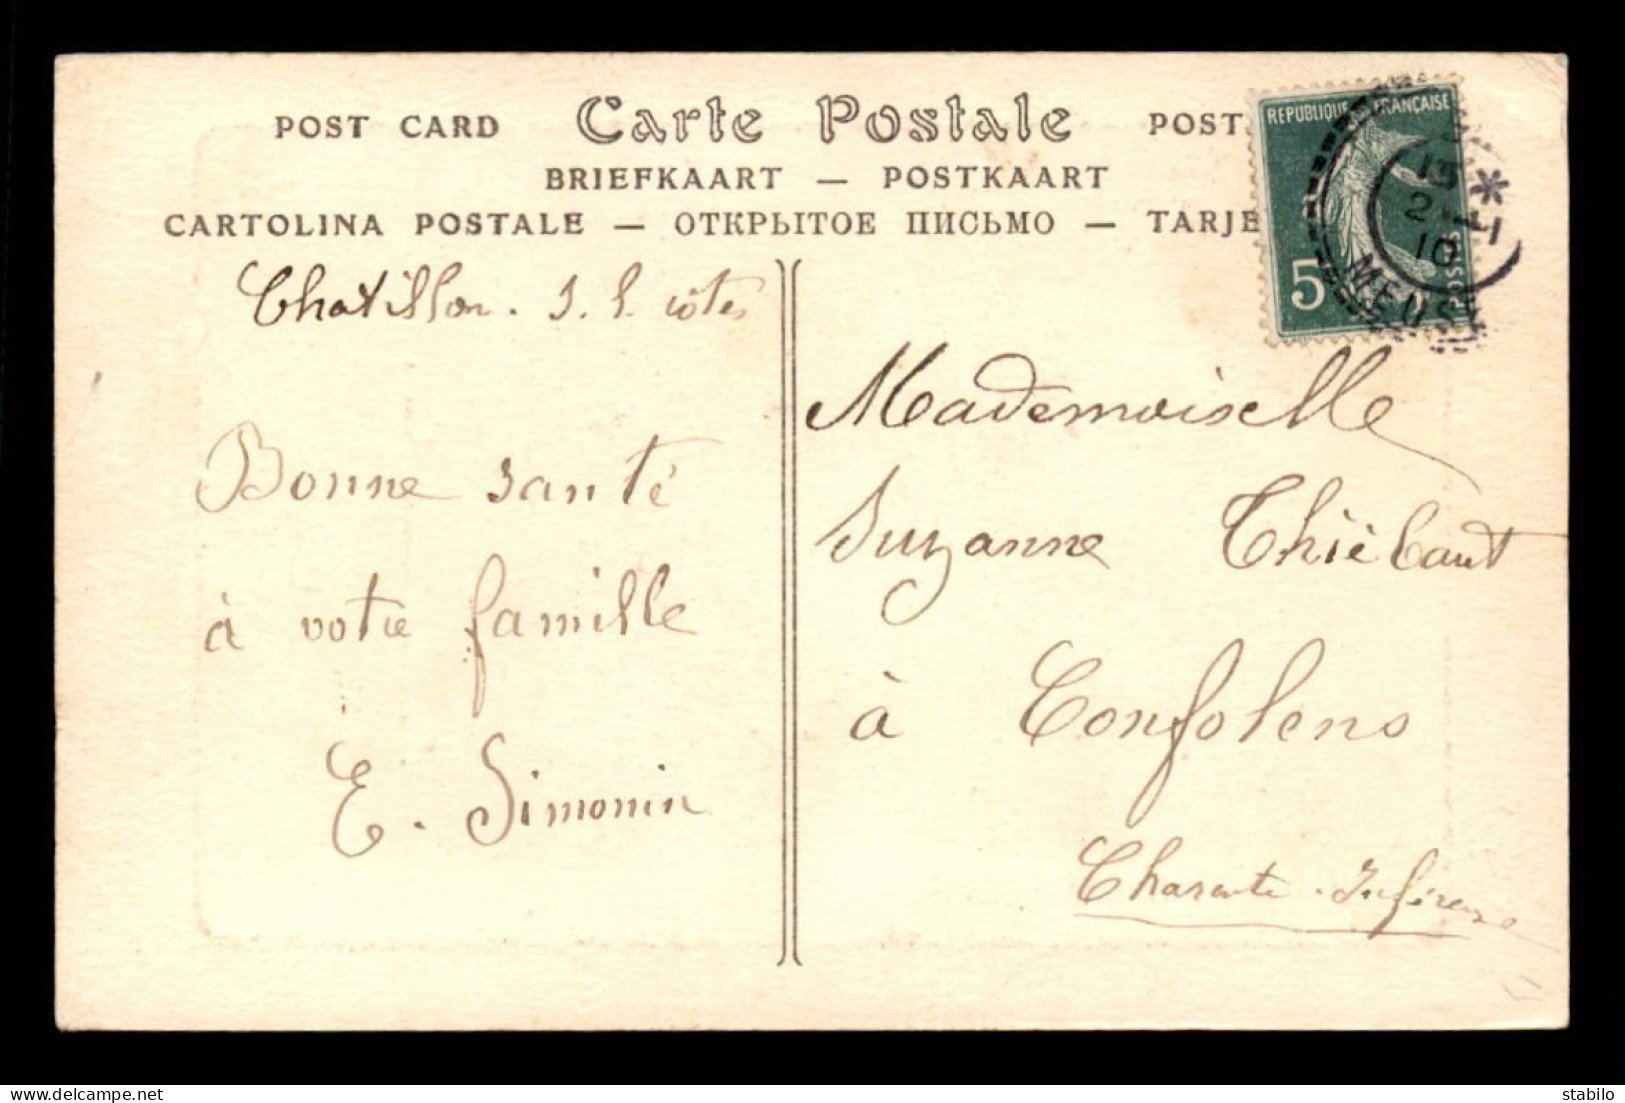 POST CARD Carte Postale POST
BRIEFKAART — POSTKAART
CARTOLINA POSTALE — ОТКРЫТОЕ ПИСЬМО — TARJE
REPUBLIQUE FRANÇAISE
5
POSTES
10
MEUSE
Chatillon. s. l. côtes
Bonne santé
à votre famille
E. Simonin
Mademoiselle
Suzanne Thiébaut
à Confolens
Charente-Inférieure
delcampe.net
stabilo